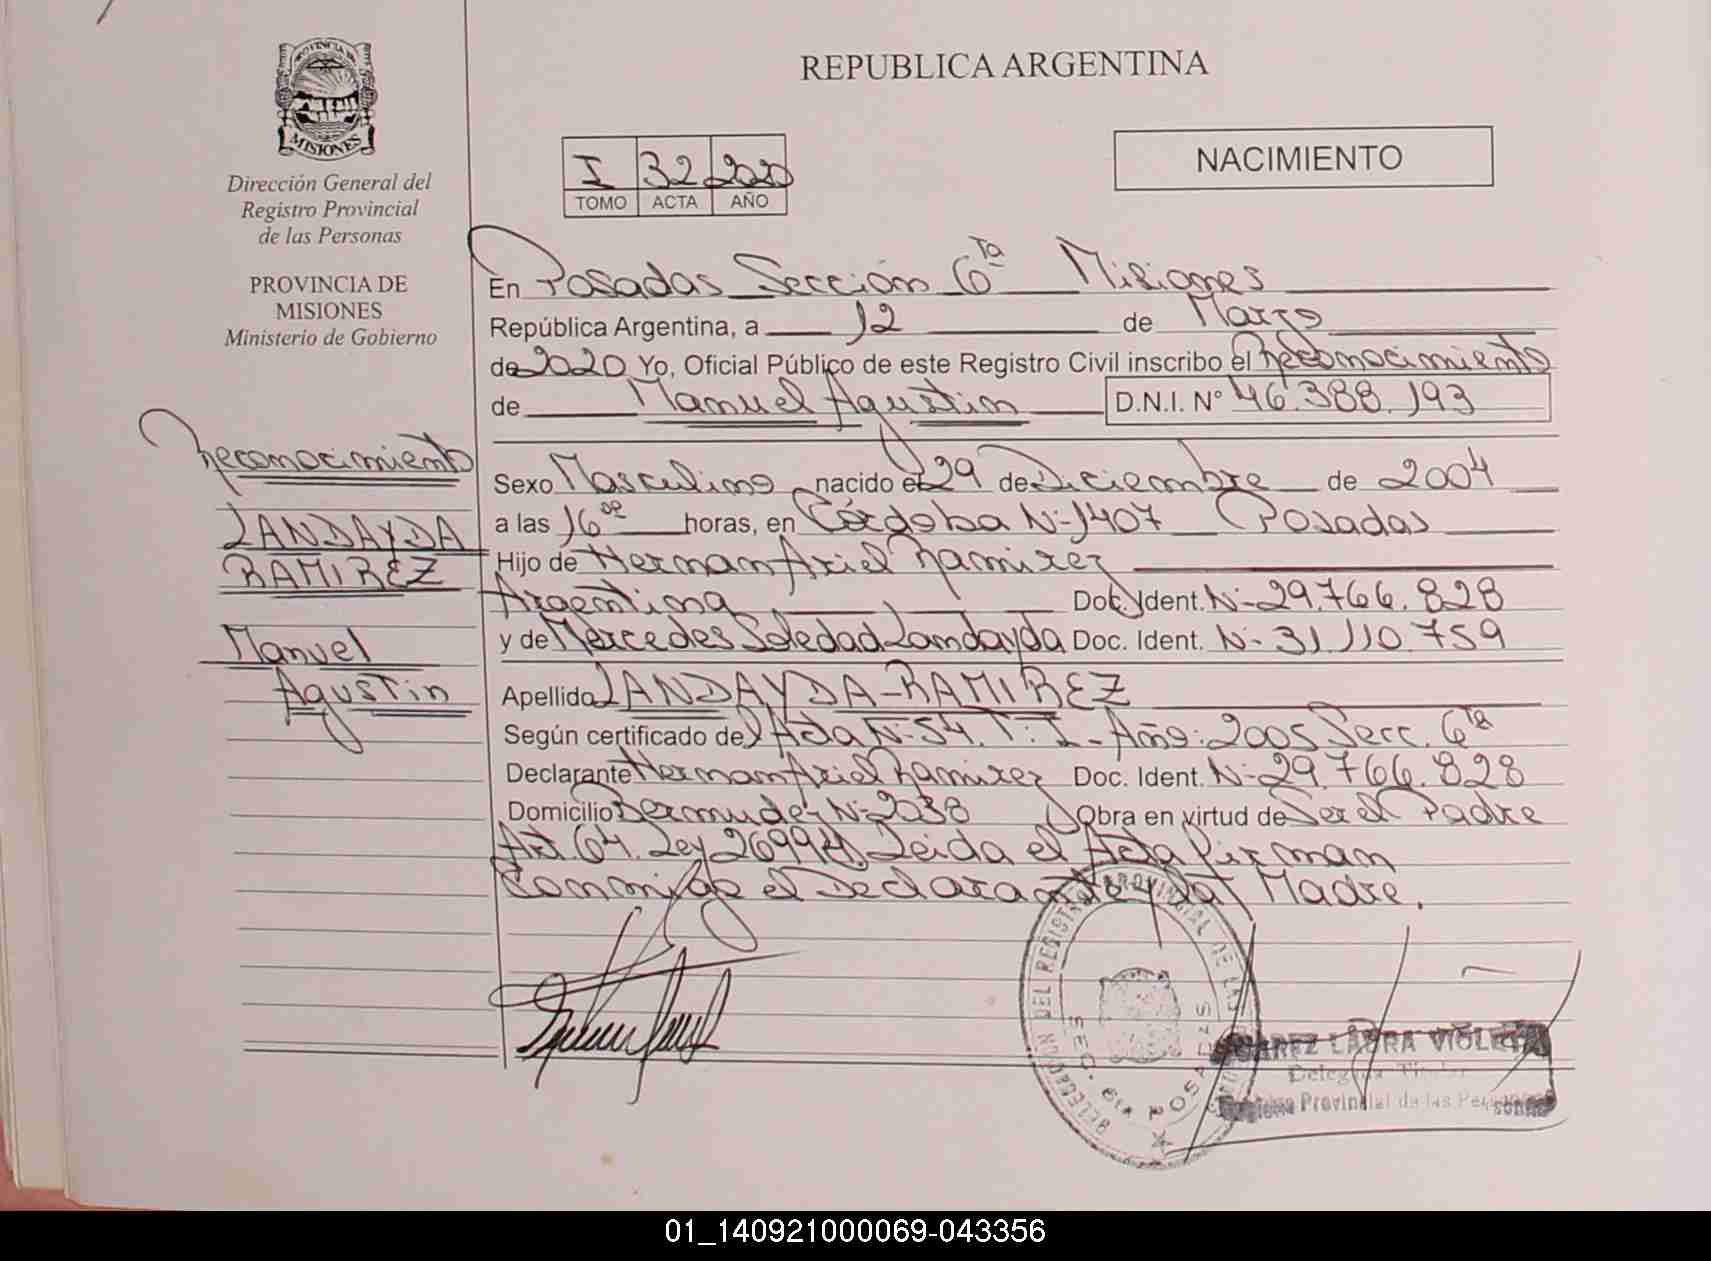 PROVINCIA DE
MISIONES
Dirección General del
Registro Provincial
de las Personas
PROVINCIA DE
MISIONES
Ministerio de Gobierno
Reconocimiento
LANDAYDA
RAMIREZ
Manuel
Agustin
REPUBLICA ARGENTINA
I 32 2020
TOMO ACTA AÑO
NACIMIENTO
En Posadas Sección 6ta Misiones
República Argentina, a 12 de Marzo
de 2020 Yo, Oficial Público de este Registro Civil inscribo el Reconocimiento
de Manuel Agustin D.N.I. N° 46.388.193
Sexo Masculino nacido el 29 de Diciembre de 2004
a las 16 00 horas, en Córdoba N-1407 Posadas
Hijo de Hernan Ariel Ramirez
Argentina Doc. Ident. N-29.766.828
y de Mercedes Soledad Landayda Doc. Ident. N-31.110.759
Apellido LANDAYDA-RAMIREZ
Según certificado de Acta N-54. T: I- Año: 2005 Secc. 6ta
Declarante Hernan Ariel Ramirez Doc. Ident. N-29.766.828
Domicilio Bermudez N-2038 Obra en virtud de Ser el Padre
Art. 64. Ley 26994. Leida el Acta firman
Conmigo el Declarante y la Madre.
DELEGACION DEL REGISTRO PROVINCIAL DE LAS
SEC. 6ta POSADAS
LAURA VIOLETA
Delegada Titular
Provincial de las Personas
01_140921000069-043356